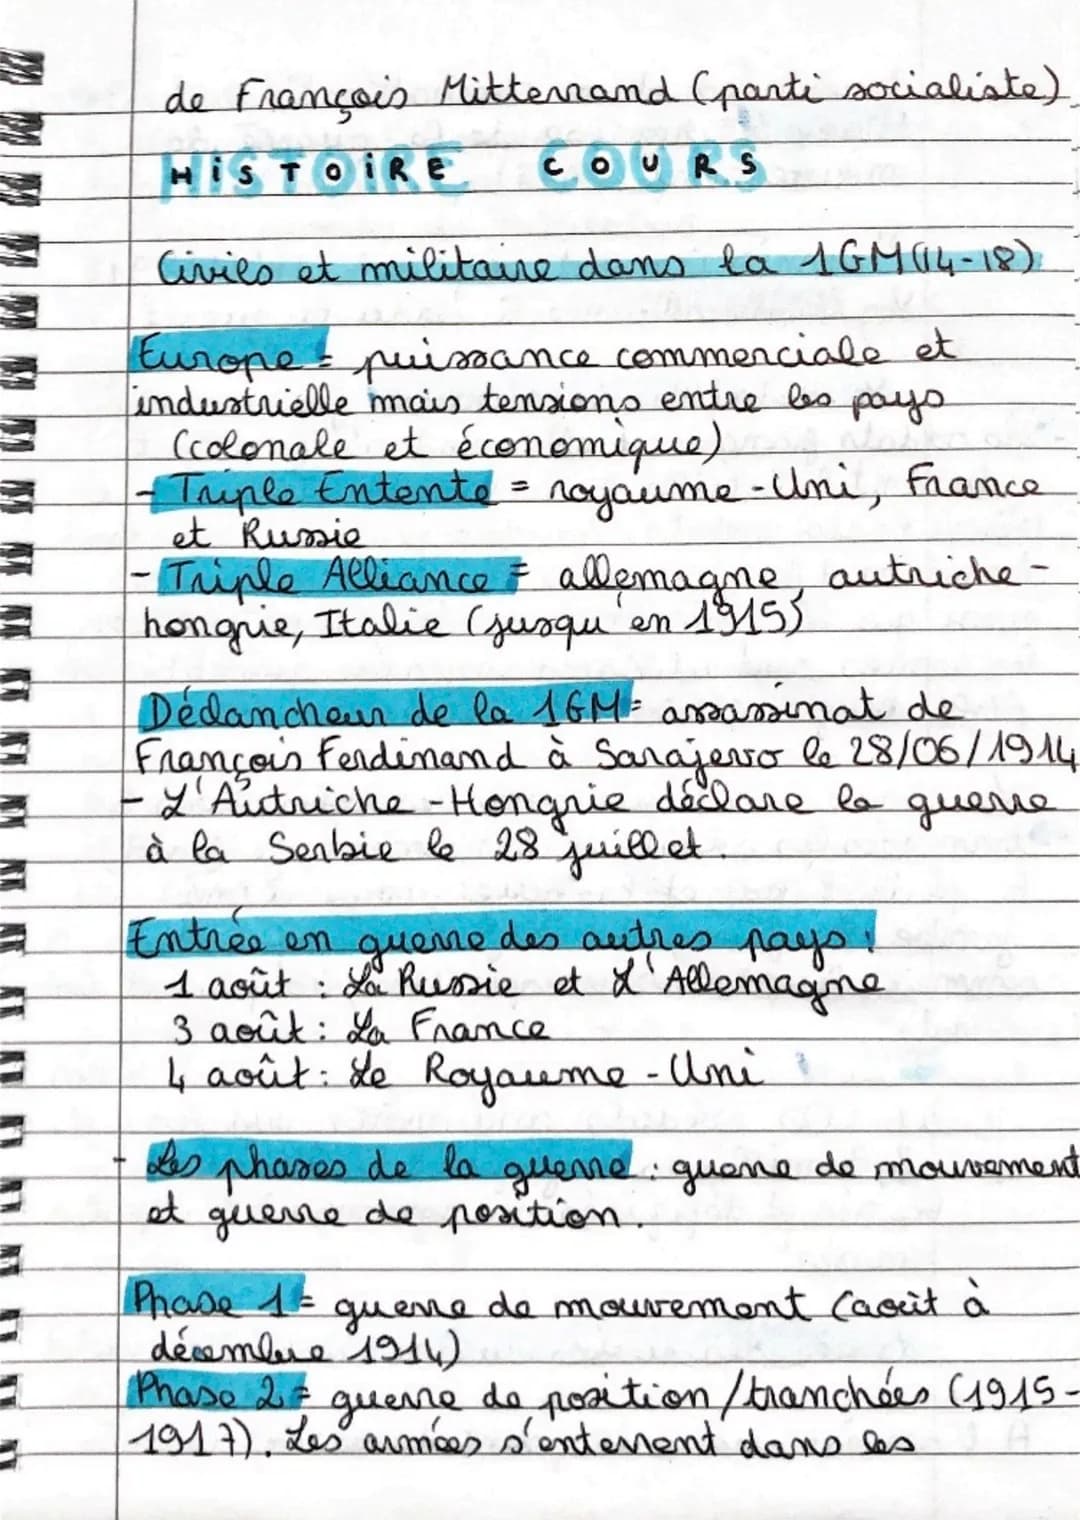 de François Mitterrand (parti socialiste)
HiSTOiRE COURS
Civils et militaire dans la 1GM (14-18)
Europe = puissance commerciale et
industrielle mais tensions entre les pays
(colonale et économique)
- Triple Entente = royaume-Uni, France
et Russie
- Triple Alliance = allemagne, autriche-
hongrie, Italie (jusqu'en 1915)
Déclancheur de la 1GM = assassinat de
François Ferdinand à Sarajervo le 28/06/1914
- L'Autriche-Hongrie déclare la guerre
à la Serbie le 28 juillet.
Entrée en guerre des autres pays :
1 août : La Russie et L'Allemagne
3 août : La France
4 août : Le Royaume-Uni
- Les phases de la guerre : guerre de mouvement
et guerre de position.
Phase 1 = guerre de mouvement (août à
décembre 1914)
Phase 2 = guerre de position/tranchées (1915-
1917). Les armées s'enterrent dans les